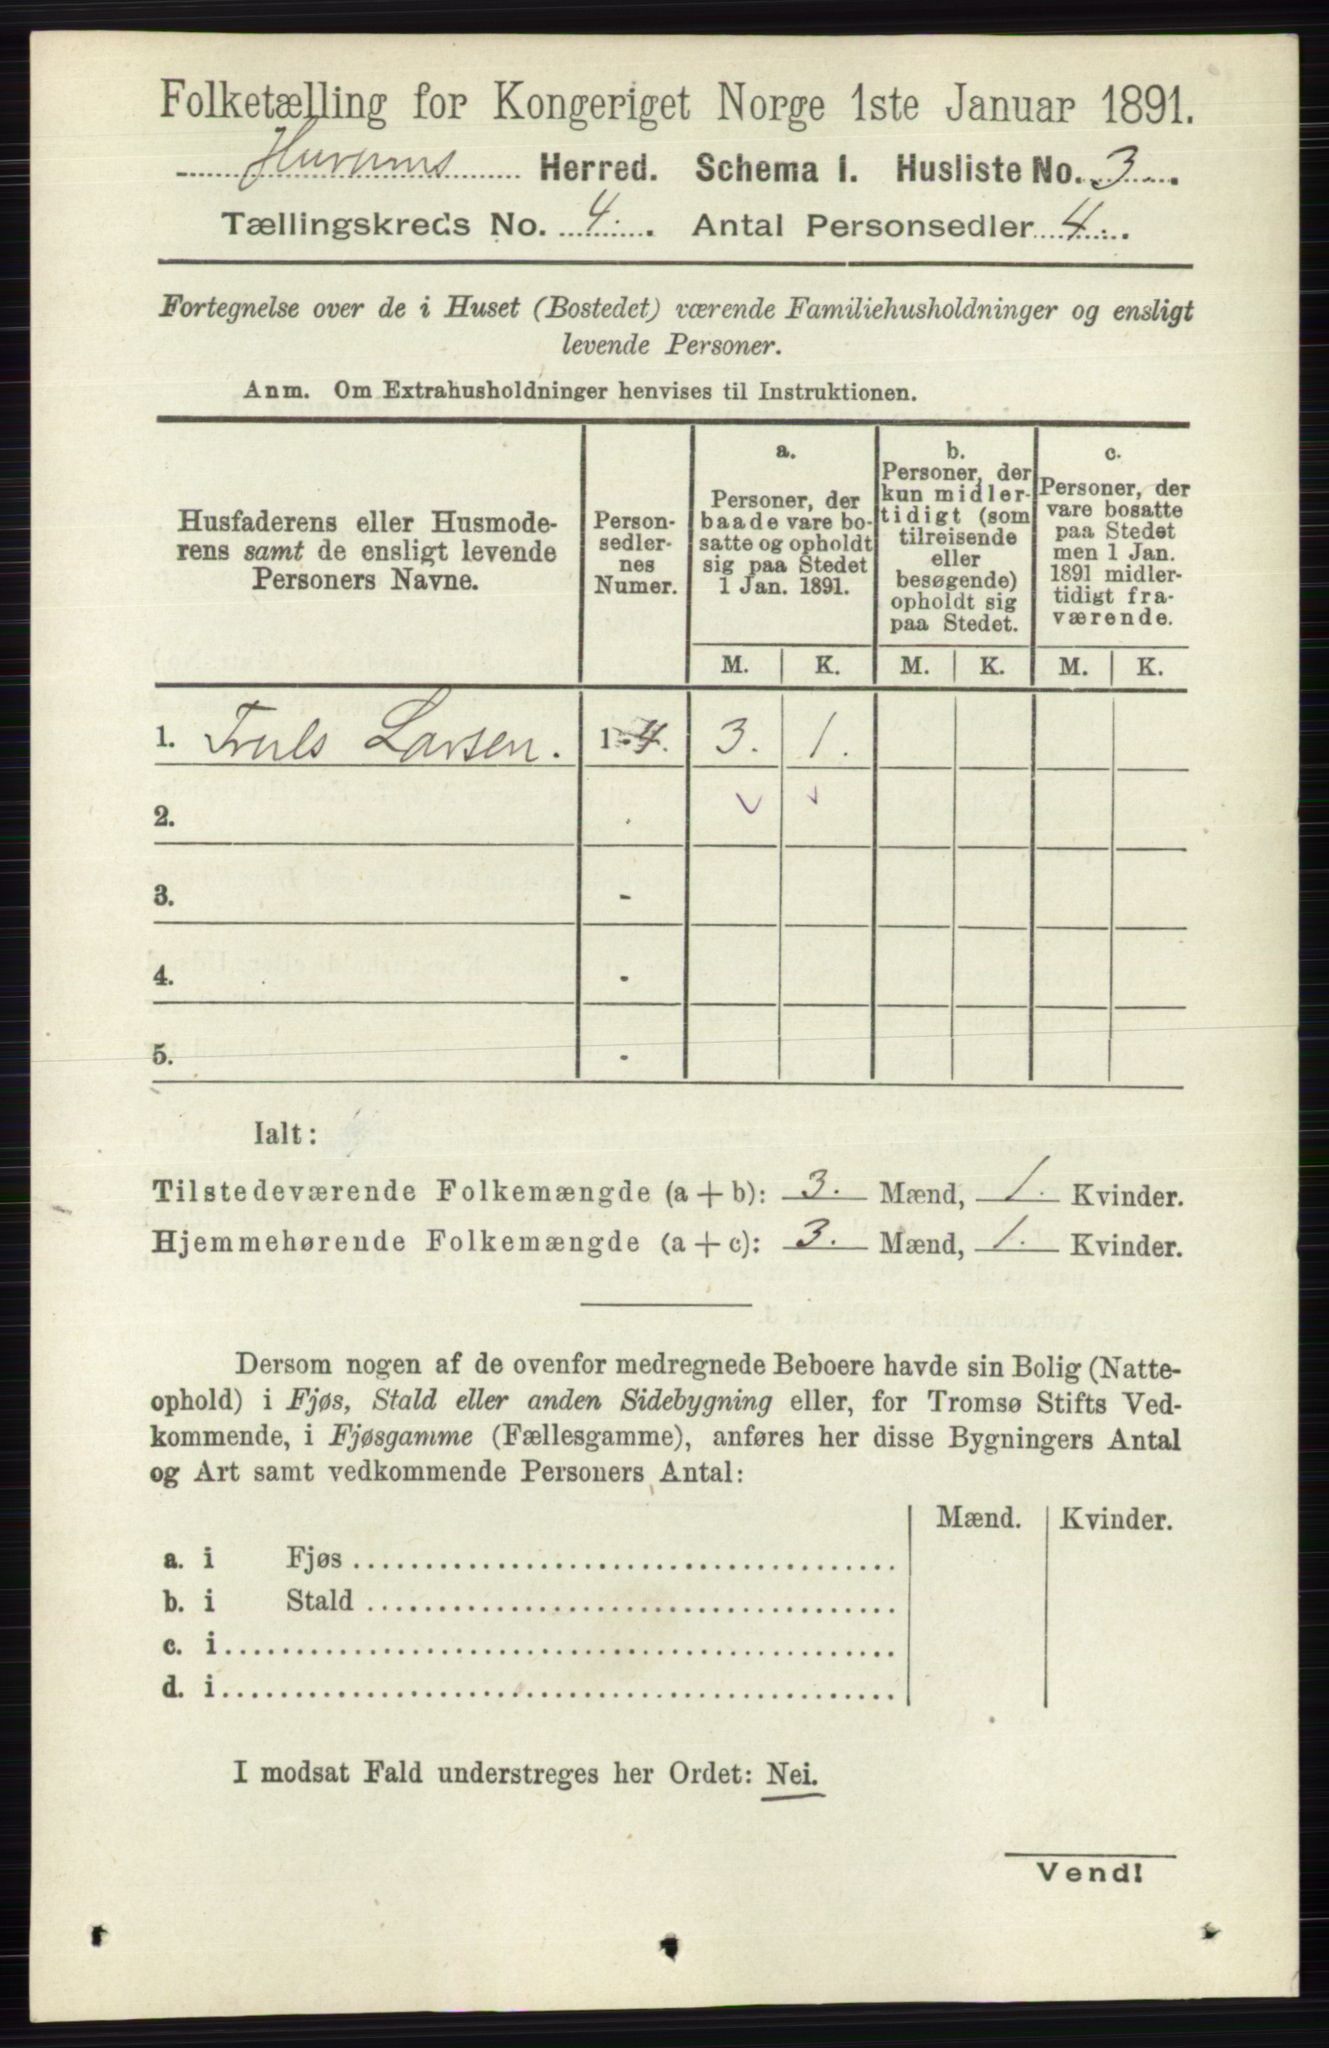 Folketælling for Kongeriget Norge 1ste Januar 1891.
Hurums Herred. Schema I. Husliste No. 3.
Tællingskreds No. 4. Antal Personsedler 4.
Fortegnelse over de i Huset (Bostedet) værende Familiehusholdninger og ensligt
levende Personer.
Anm. Om Extrahusholdninger henvises til Instruktionen.
Husfaderens eller Husmode-
rens samt de ensligt levende
Personers Navne.
Person-
sedler-
nes
Numer.
a.
Personer, der
baade vare bo-
satte og opholdt
sig paa Stedet
1 Jan. 1891.
b.
Personer, der
kun midler-
tidigt (som
tilreisende
eller
besøgende)
opholdt sig
paa Stedet.
c.
Personer, der
vare bosatte
paa Stedet
men 1 Jan.
1891 midler-
tidigt fra-
værende.
M. K. M. K. M. K.
1. Truls Larsen. 1-4. 3. 1.
2.
3. -
4. -
5. -
Ialt:
Tilstedeværende Folkemængde (a + b): 3. Mænd, 1. Kvinder.
Hjemmehørende Folkemængde (a + c): 3. Mænd, 1. Kvinder.
Dersom nogen af de ovenfor medregnede Beboere havde sin Bolig (Natte-
ophold) i Fjøs, Stald eller anden Sidebygning eller, for Tromsø Stifts Ved-
kommende, i Fjøsgamme (Fællesgamme), anføres her disse Bygningers Antal
og Art samt vedkommende Personers Antal:
Mænd. Kvinder.
a. i Fjøs
b. i Stald
c. i
d. i
I modsat Fald understreges her Ordet: Nei.
Vend!